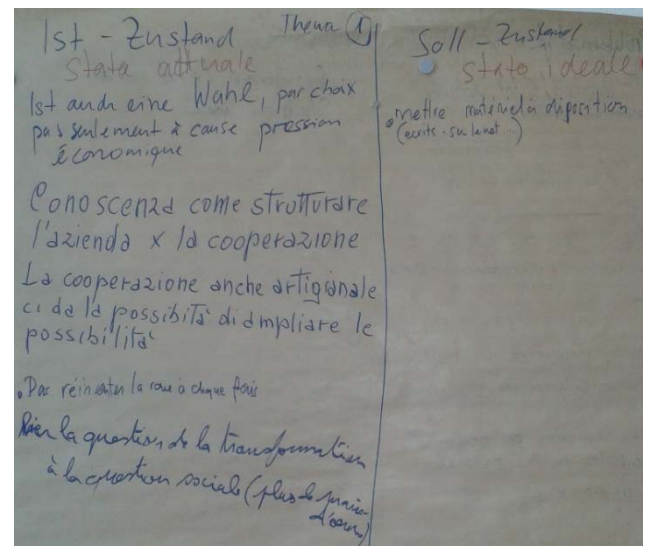 Ist - Zustand Thema 1
Stata attuale
Ist auch eine Wahl, par choix
pas seulement à cause pression
économique
Conoscenza come strutturare
l'azienda x la cooperazione
La cooperazione anche artigianale
ci da la possibiltà di ampliare le
possibilità
. Pas réinventer la roue à chaque fois
Lier la question de la transformation
à la question sociale (plus de
Soll - Zustand
stato ideale
. mettre matériel à disposition
(écrits - sur le net...)